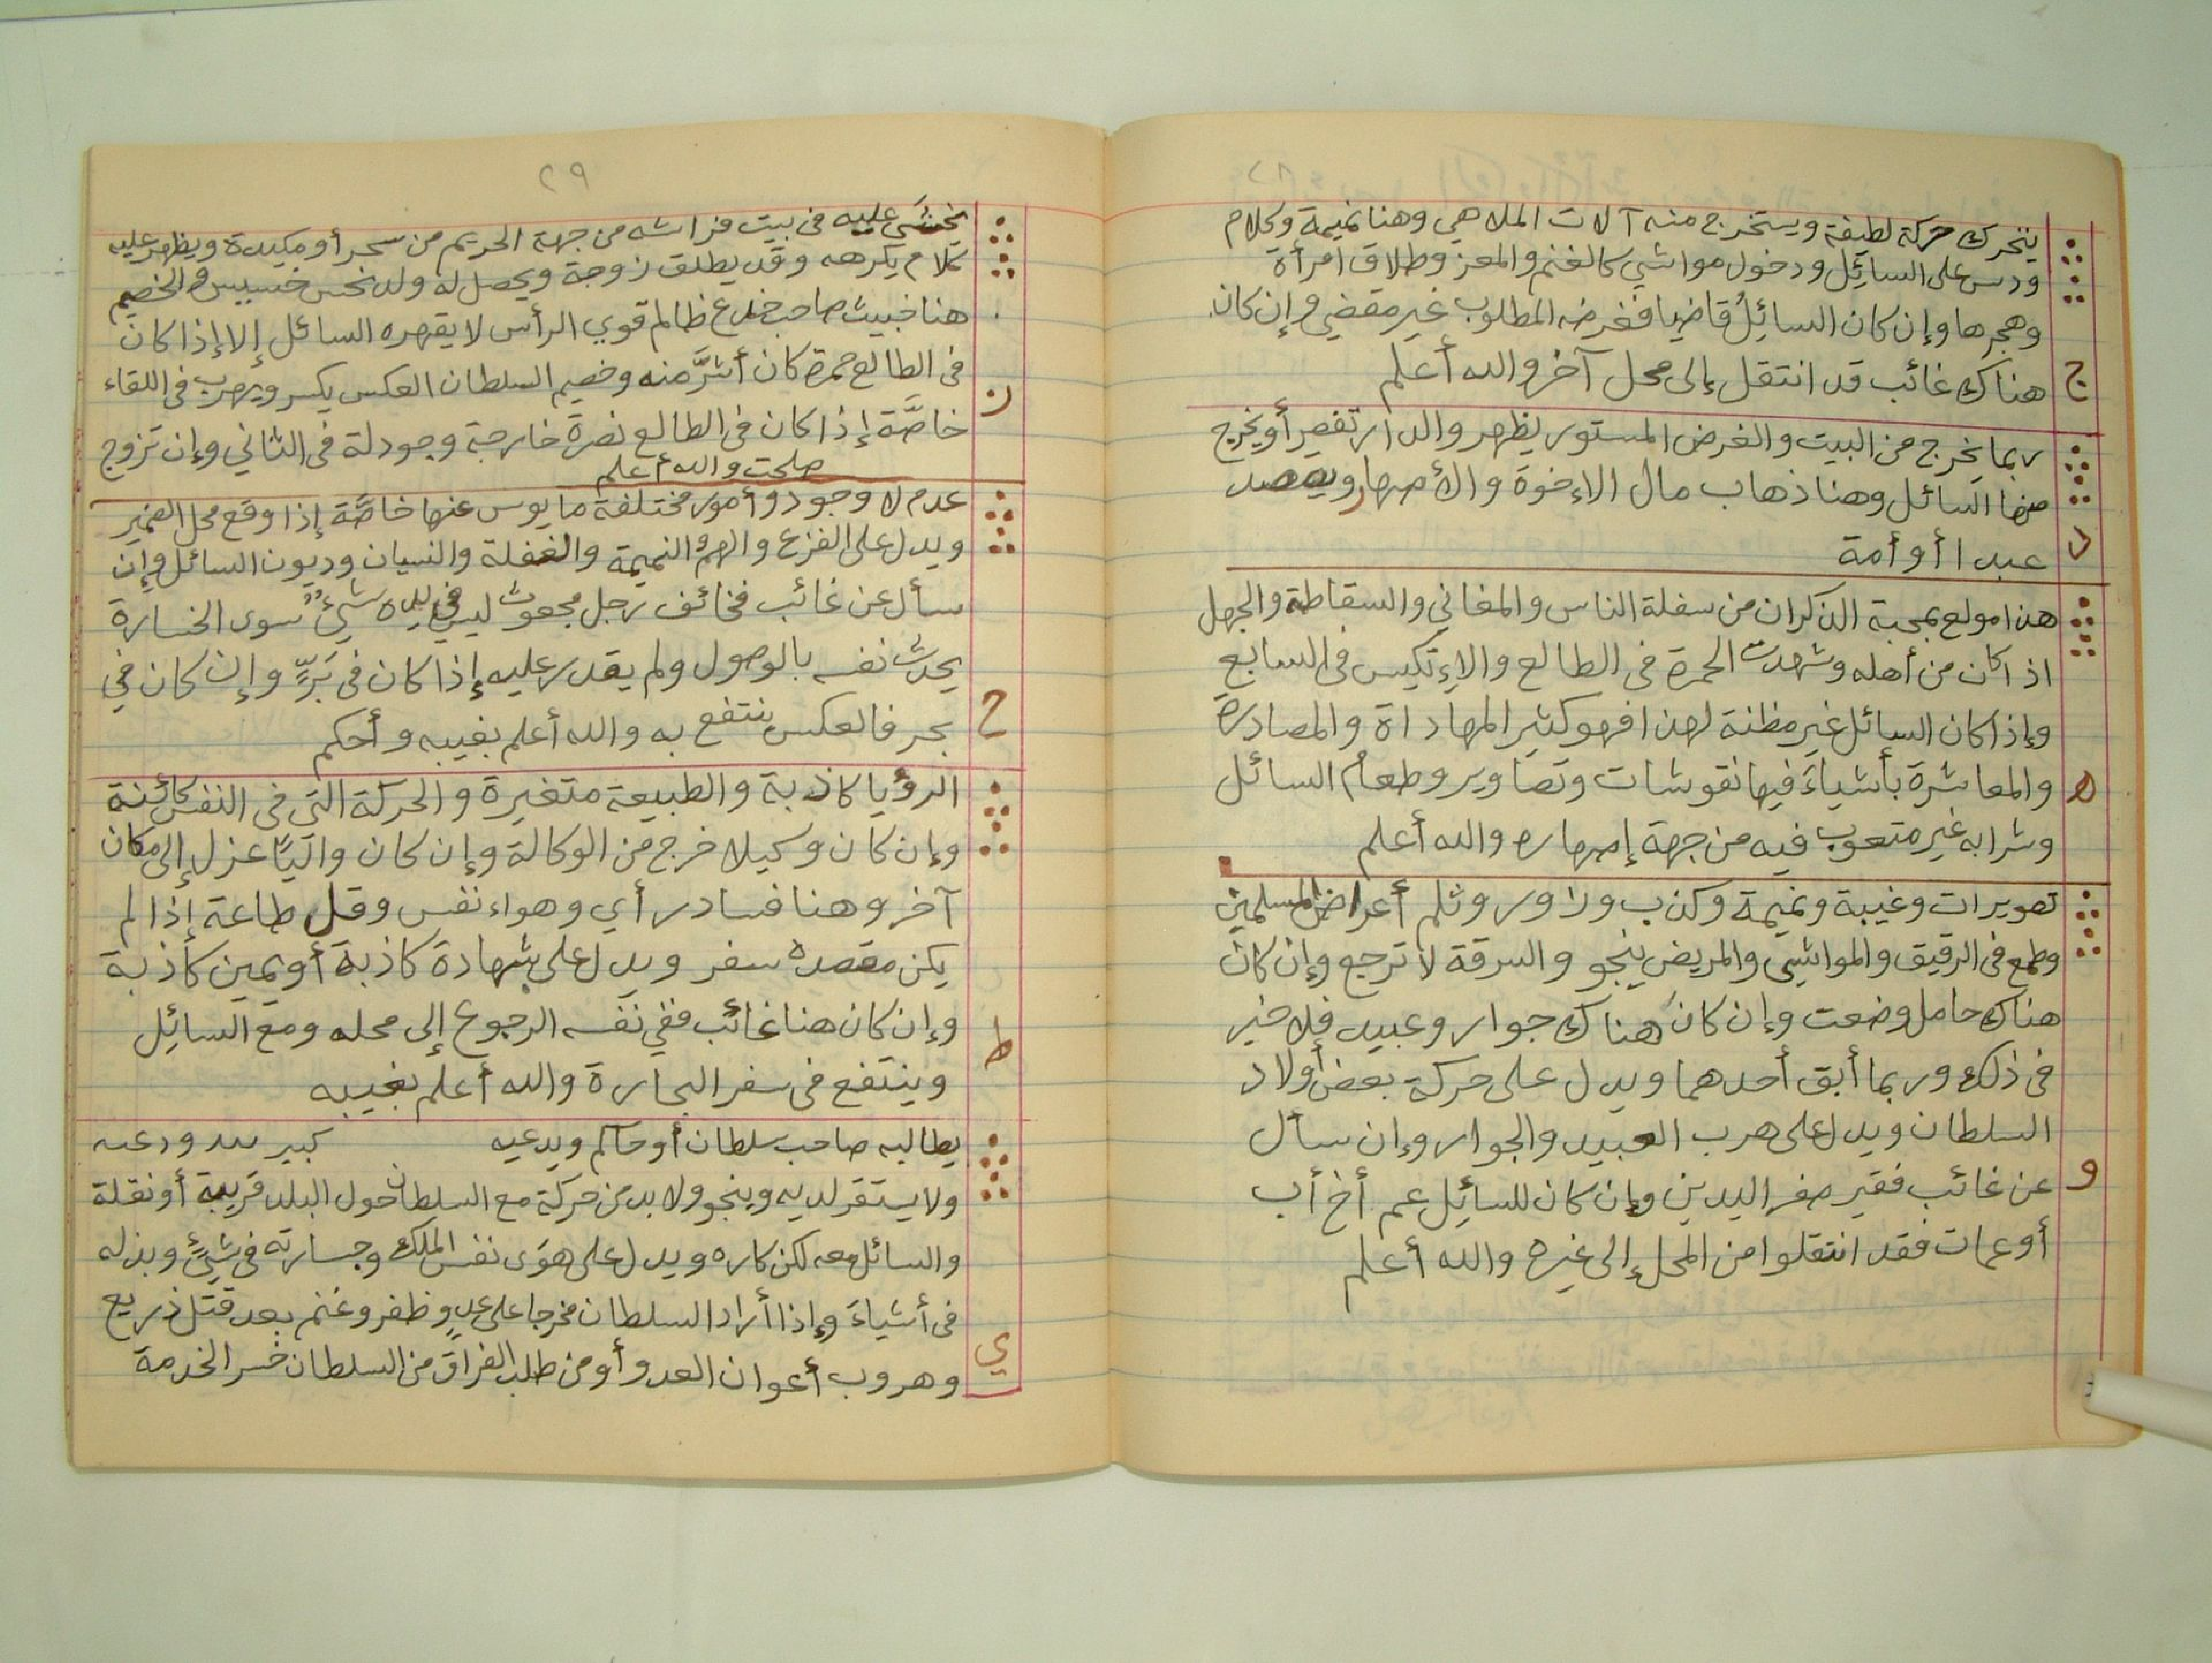 ٢٨
يتحرك حركة لطيفة ويستخرج منه آلات الملاهي وهنا نميمة وكلام
ودس على السائِل ودخول مواشي كالغنم والمعز وطلاق امرأة
وهجرها وإن كان السائِلُ قاضيا فغرضه المطلوب غير مقضي وإن كان
ج هناك غائب قد انتقل إلى محل آخر والله أعلم
ربما يخرج من البيت والغرض المستور يظهر والدار تقصر أو يخرج
منها السائل وهنا ذهاب مال الإخوة والأصهار
د عبدا أو أمة
هذا مولع بمحبة الذكران من سفلة الناس والمغاني والسقاطة والجهل
اذا كان من أهله وشهدت الحمرة في الطالع والإنكيس في السابع
وإذا كان السائل غير مظنة لهذا فهو كثير المهاداة والمصادرة
ه والمعاشرة بأشياءَ فيها نقوشات وتصاوير وطعام السائل
وشرابه غير متعوب فيه من جهة إصهاره والله أعلم
تصويرات وغيبة ونميمة وكذب وزاور وثلم أعراض المسلمين
وطمع في الرقيق والمواشي والمريض ينجو والسرقة لا ترجع وإن كان
هناك حامل وضعت وإن كان هناك جوار وعبيد فلا خير
في ذلك وربما أبق أحدهما ويدل على حركة بعض أولاد
السلطان ويدل على هرب العبيد والجوار وإن سأل
و عن غائب فقير صفر اليدين وإن كان للسائِل عم أخ أب
أو عمات فقد انتقلوا من المحل إلى غيره والله أعلم
٢٩
يخشَى عليه في بيت فراشه من جهة الحريم من سحر أو مكيدة ويظهر عليه
كلام يكرهه وقد يطلق زوجة ويحصل له ولد نحس خسيس والخصيم
هنا خبيث صاحب خدع ظالم قوي الرأس لا يقهره السائل إلا إذا كان
في الطالع حمرة كان أشرَّ منه وخصيم السلطان العكس يكسر ويهرب في اللقاء
ز خاصَّة إذا كان في الطالع نصرة خارجة وجودلة في الثاني وإن تزوج
صلحت والله أعلم
عدم لا وجود وأمور مختلفة مايوس عنها خاصَّة إذا وقع محل الضمير
ويدل على الفزع والهم والنميمة والغفلة والنسيان وديون السائل وإن
سأل عن غائب فخائف رجل مجعوث ليس في يده شيءٌ سوى الخسارة
يحدث نفسه بالوصول ولم يقدر عليه إذا كان في بَرٍّ وإن كان في
ح بحر فالعكس ينتفع به والله أعلم بغيبه وأحكم
الرؤيا كاذبة والطبيعة متغيرة والحركة التي في النفس كائِنة
وإن كان وكيلا خرج من الوكالة وإن كان واليًا عزل إلى مكان
آخر وهنا فساد رأي وهواء نفس وقل طاعة إذا لم
يكن مقصده سفر ويدل على شهادة كاذبة أو يمين كاذبة
ط وإن كان هنا غائب ففي نفسه الرجوع إلى محله ومع السائِل
وينتفع في سفر التجارة والله أعلم بغيبه
يطالبه صاحب سلطان أو حاكم ويدعيه كبير
ولا يستقر لديه وينجو ولا بد من حركة مع السلطان حول البلد قريبة أو نقلة
والسائل معه لكن كاره ويدل على هوَى نفس الملك وجسارته في شيءٍ وبذله
في أشياءَ وإذا أراد السلطان مخرجا على عدوٍ ظفر وغنم بعد قتل ذريع
ي وهروب أعوان العدو أو من طلب الفراق من السلطان خسر الخدمة